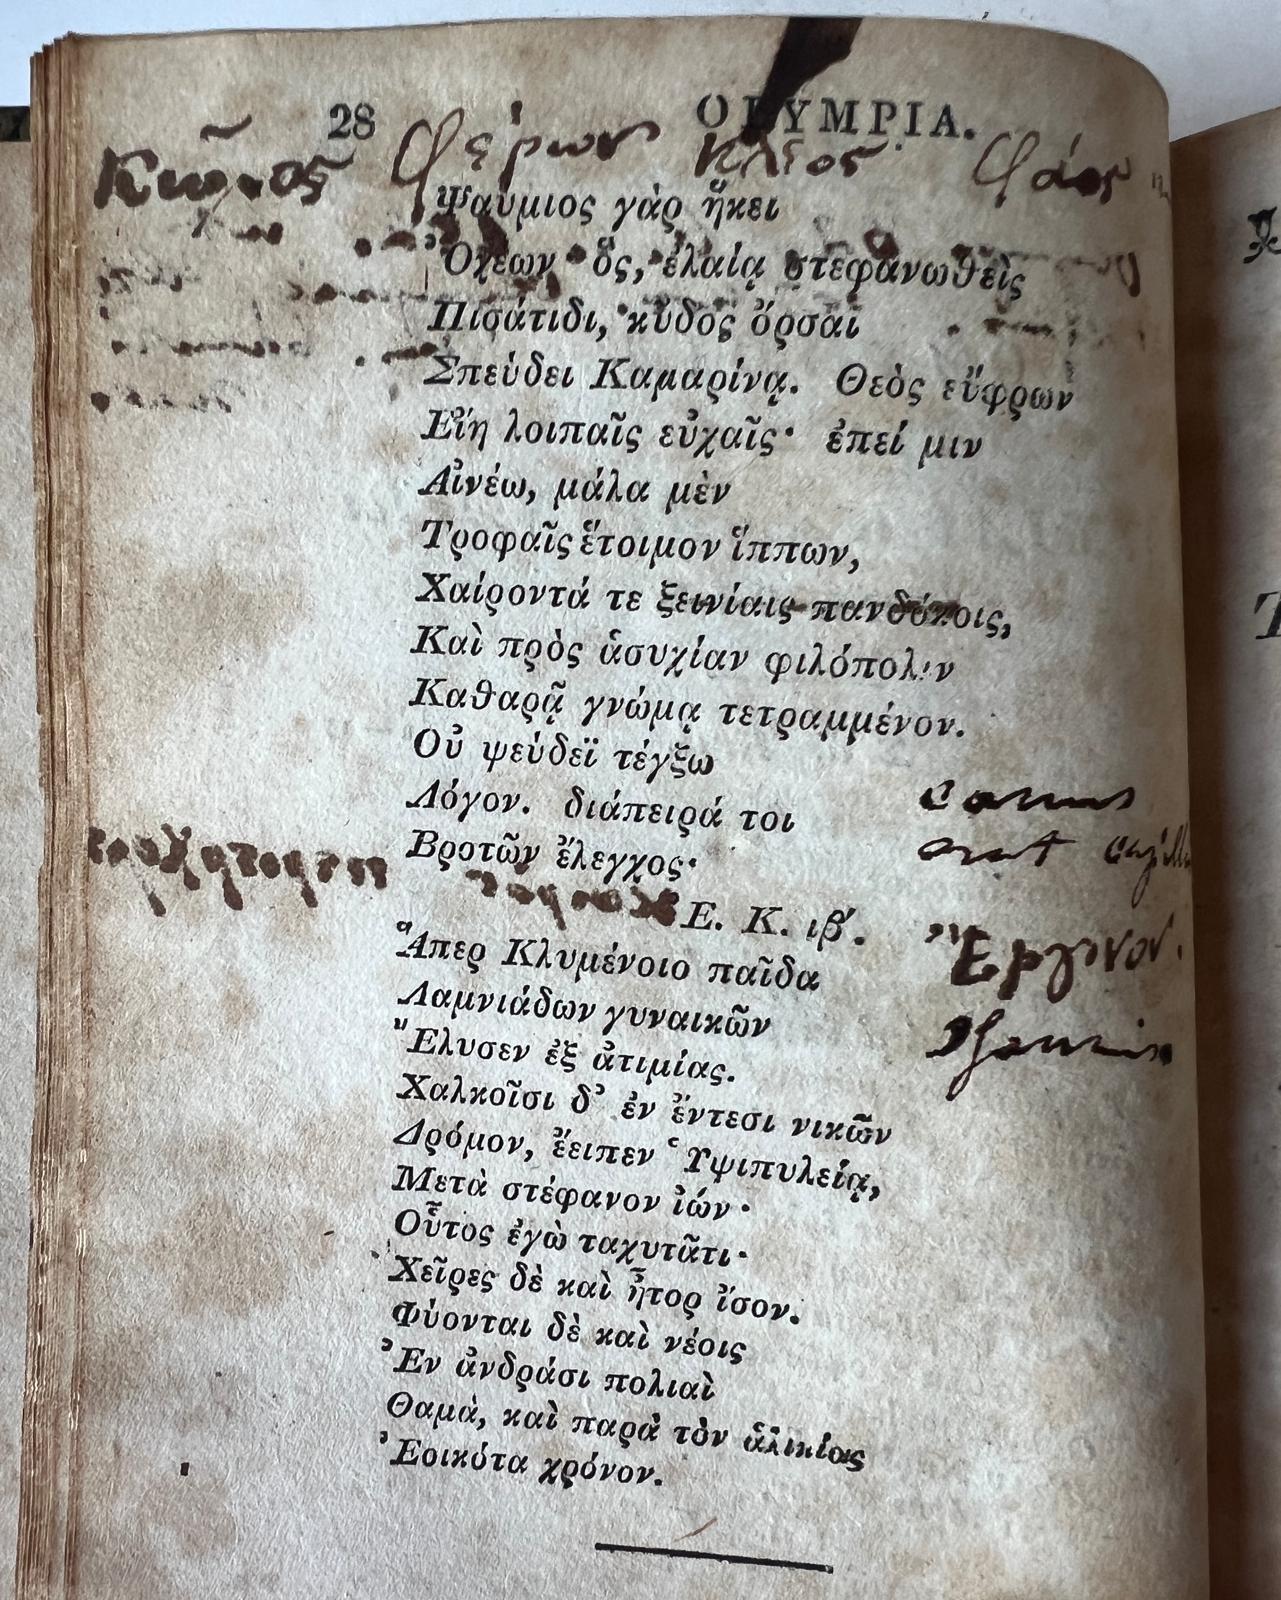 28 OLYMPIA.
φέρων κλέος φάος
Ψαύμιος γὰρ ἥκει
Ὀχέων ὅς, ἐλαίᾳ στεφανωθεὶς
Πισάτιδι, κῦδος ὄρσαι
Σπεύδει Καμαρίνᾳ. Θεὸς εὔφρων
Εἴη λοιπαῖς εὐχαῖς· ἐπεί μιν
Αἰνέω, μάλα μὲν
Τροφαῖς ἕτοιμον ἵππων,
Χαίροντά τε ξεινίαις πανδόκοις,
Καὶ πρὸς ἁσυχίαν φιλόπολιν
Καθαρᾷ γνώμᾳ τετραμμένον.
Οὐ ψεύδεϊ τέγξω
Λόγον. διάπειρά τοι
Βροτῶν ἔλεγχος·
Ε. Κ. ιβ'.
Ἅπερ Κλυμένοιο παῖδα
Ἐργῖνον.
Λαμνιάδων γυναικῶν
Ἔλυσεν ἐξ ἀτιμίας.
Χαλκοῖσι δ' ἐν ἔντεσι νικῶν
Δρόμον, ἔειπεν Ὑψιπυλείᾳ,
Μετὰ στέφανον ἰών·
Οὗτος ἐγὼ ταχυτᾶτι·
Χεῖρες δὲ καὶ ἦτορ ἴσον.
Φύονται δὲ καὶ νέοις
Ἐν ἀνδράσι πολιαὶ
Θαμὰ, καὶ παρὰ τὸν ἁλικίας
Ἐοικότα χρόνον.